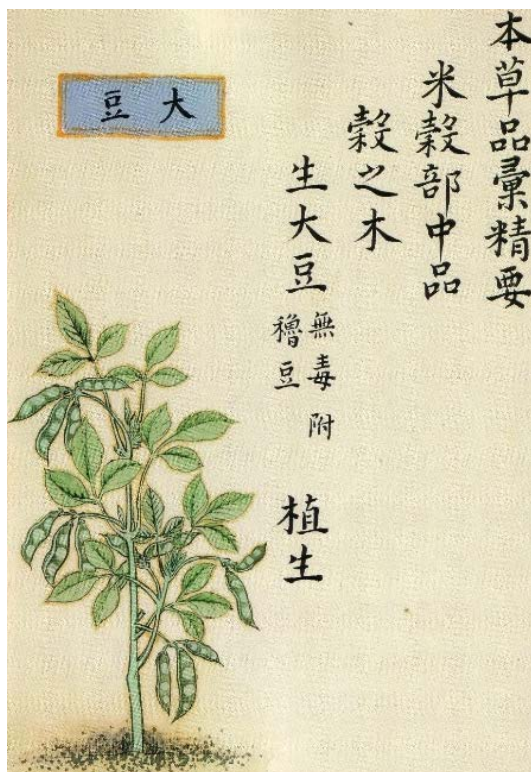 本草品彙精要
米穀部中品
穀之木
生大豆 無毒 附
穭豆 植生
大豆